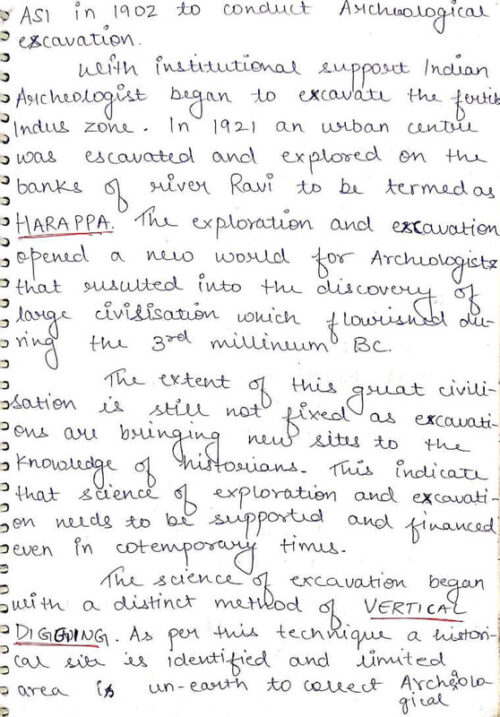 ASI in 1902 to conduct Archeological
escavation.
With institutional support Indian
Archeologist began to excavate the
Indus zone. In 1921 an urban centre
was escavated and explored on the
banks of river Ravi to be termed as
HARAPPA. The exploration and excavation
opened a new world for Archeologists
that resulted into the discovery of
large civilisation which flourished du-
ring the 3rd millineum BC.
The extent of this great civili-
sation is still not fixed as excavati-
ons are bringing new sites to the
knowledge of historians. This indicate
that science of exploration and excavati-
on needs to be supported and financed
even in cotemporary times.
The science of excavation began
with a distinct method of VERTICAL
DIGGING. As per this technique a histori-
cal site is identified and limited
area is un-earth to collect Archeolo
gical